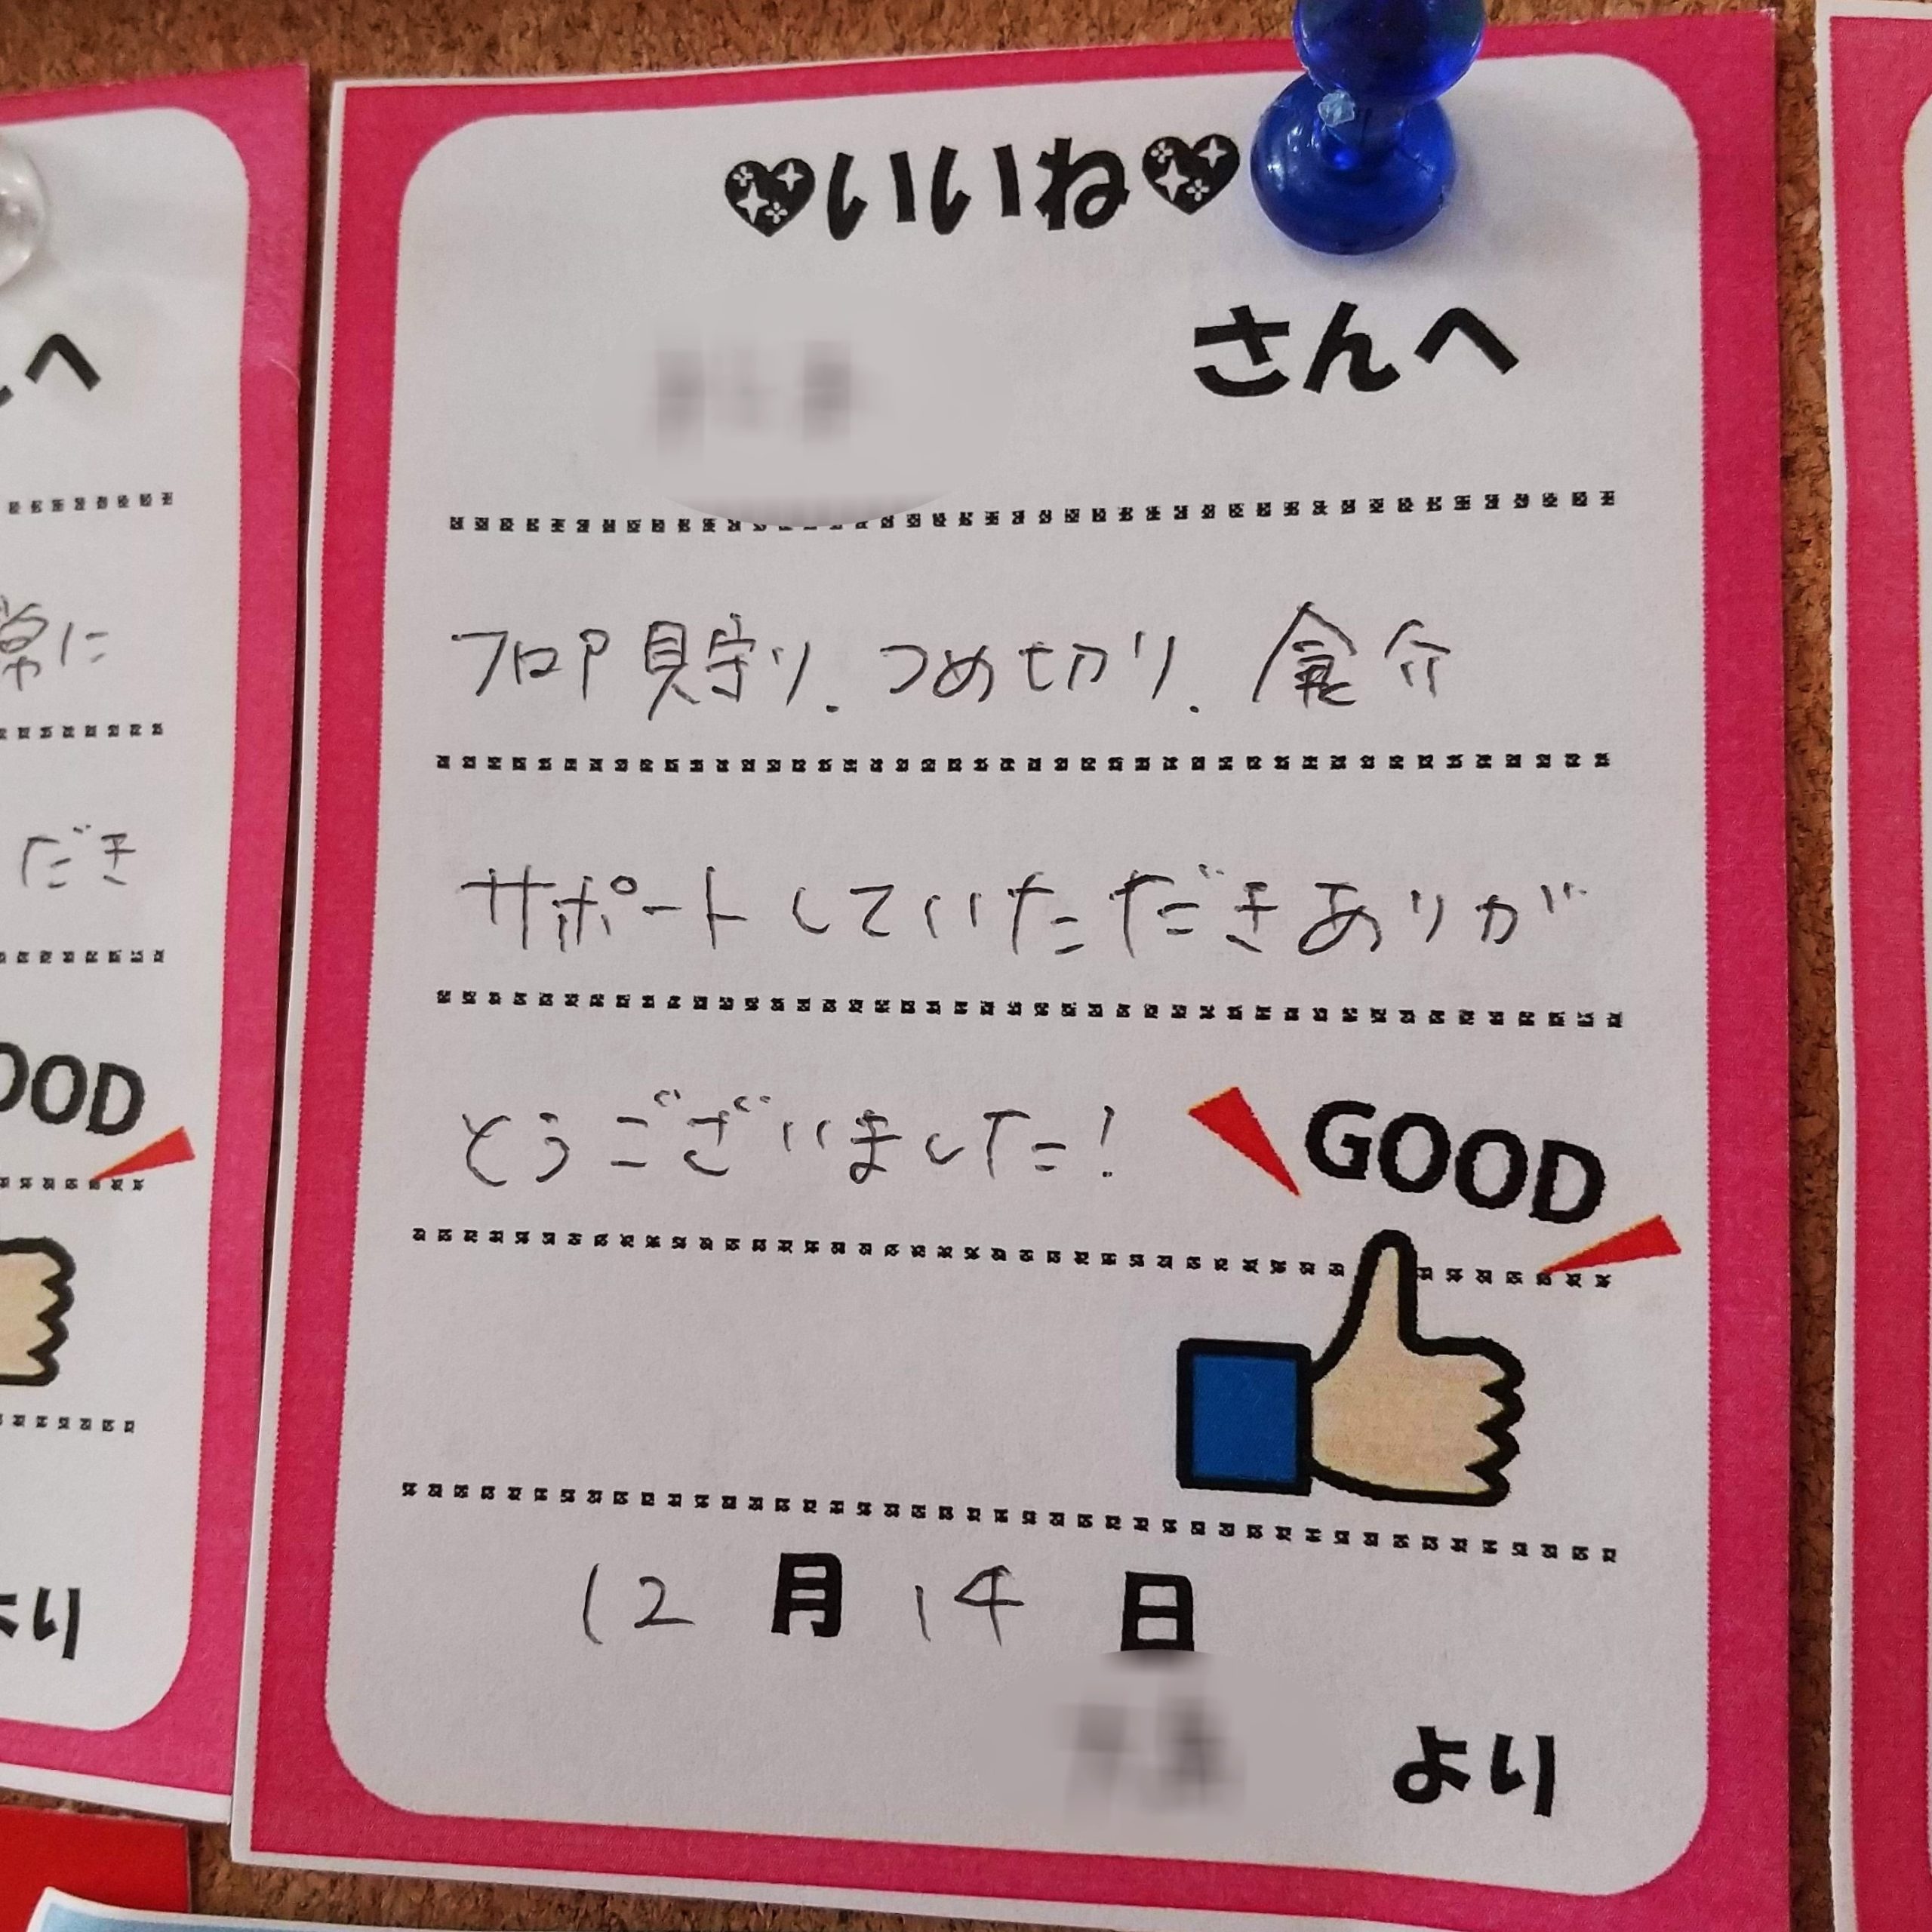 ♥いいね♥
さんへ
フロア見守り、つめ切り、食介
サポートしていただきありが
とうございました!
GOOD
12月14日
より
へ
常に
だき
OOD
より